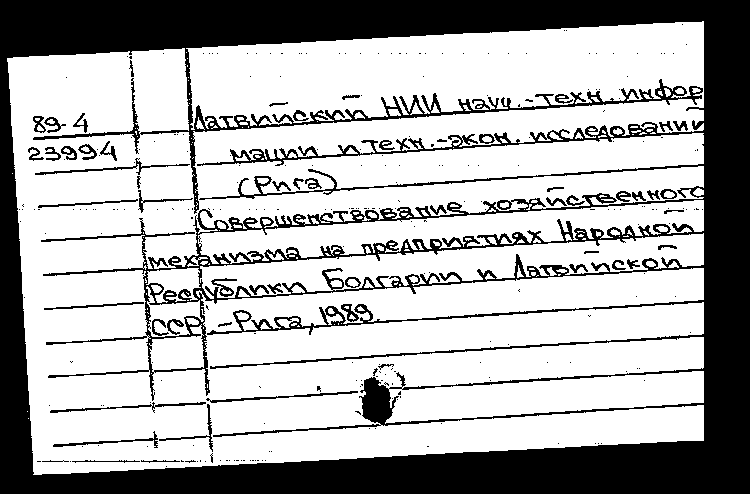 89-4
23994
Латвийский НИИ науч.-техн. инфор
мации и техн.-экон. исследований
(Рига)
Совершенствование хозяйственного
механизма на предприятиях Народной
Республики Болгарии и Латвийской
ССР.-Рига, 1989.